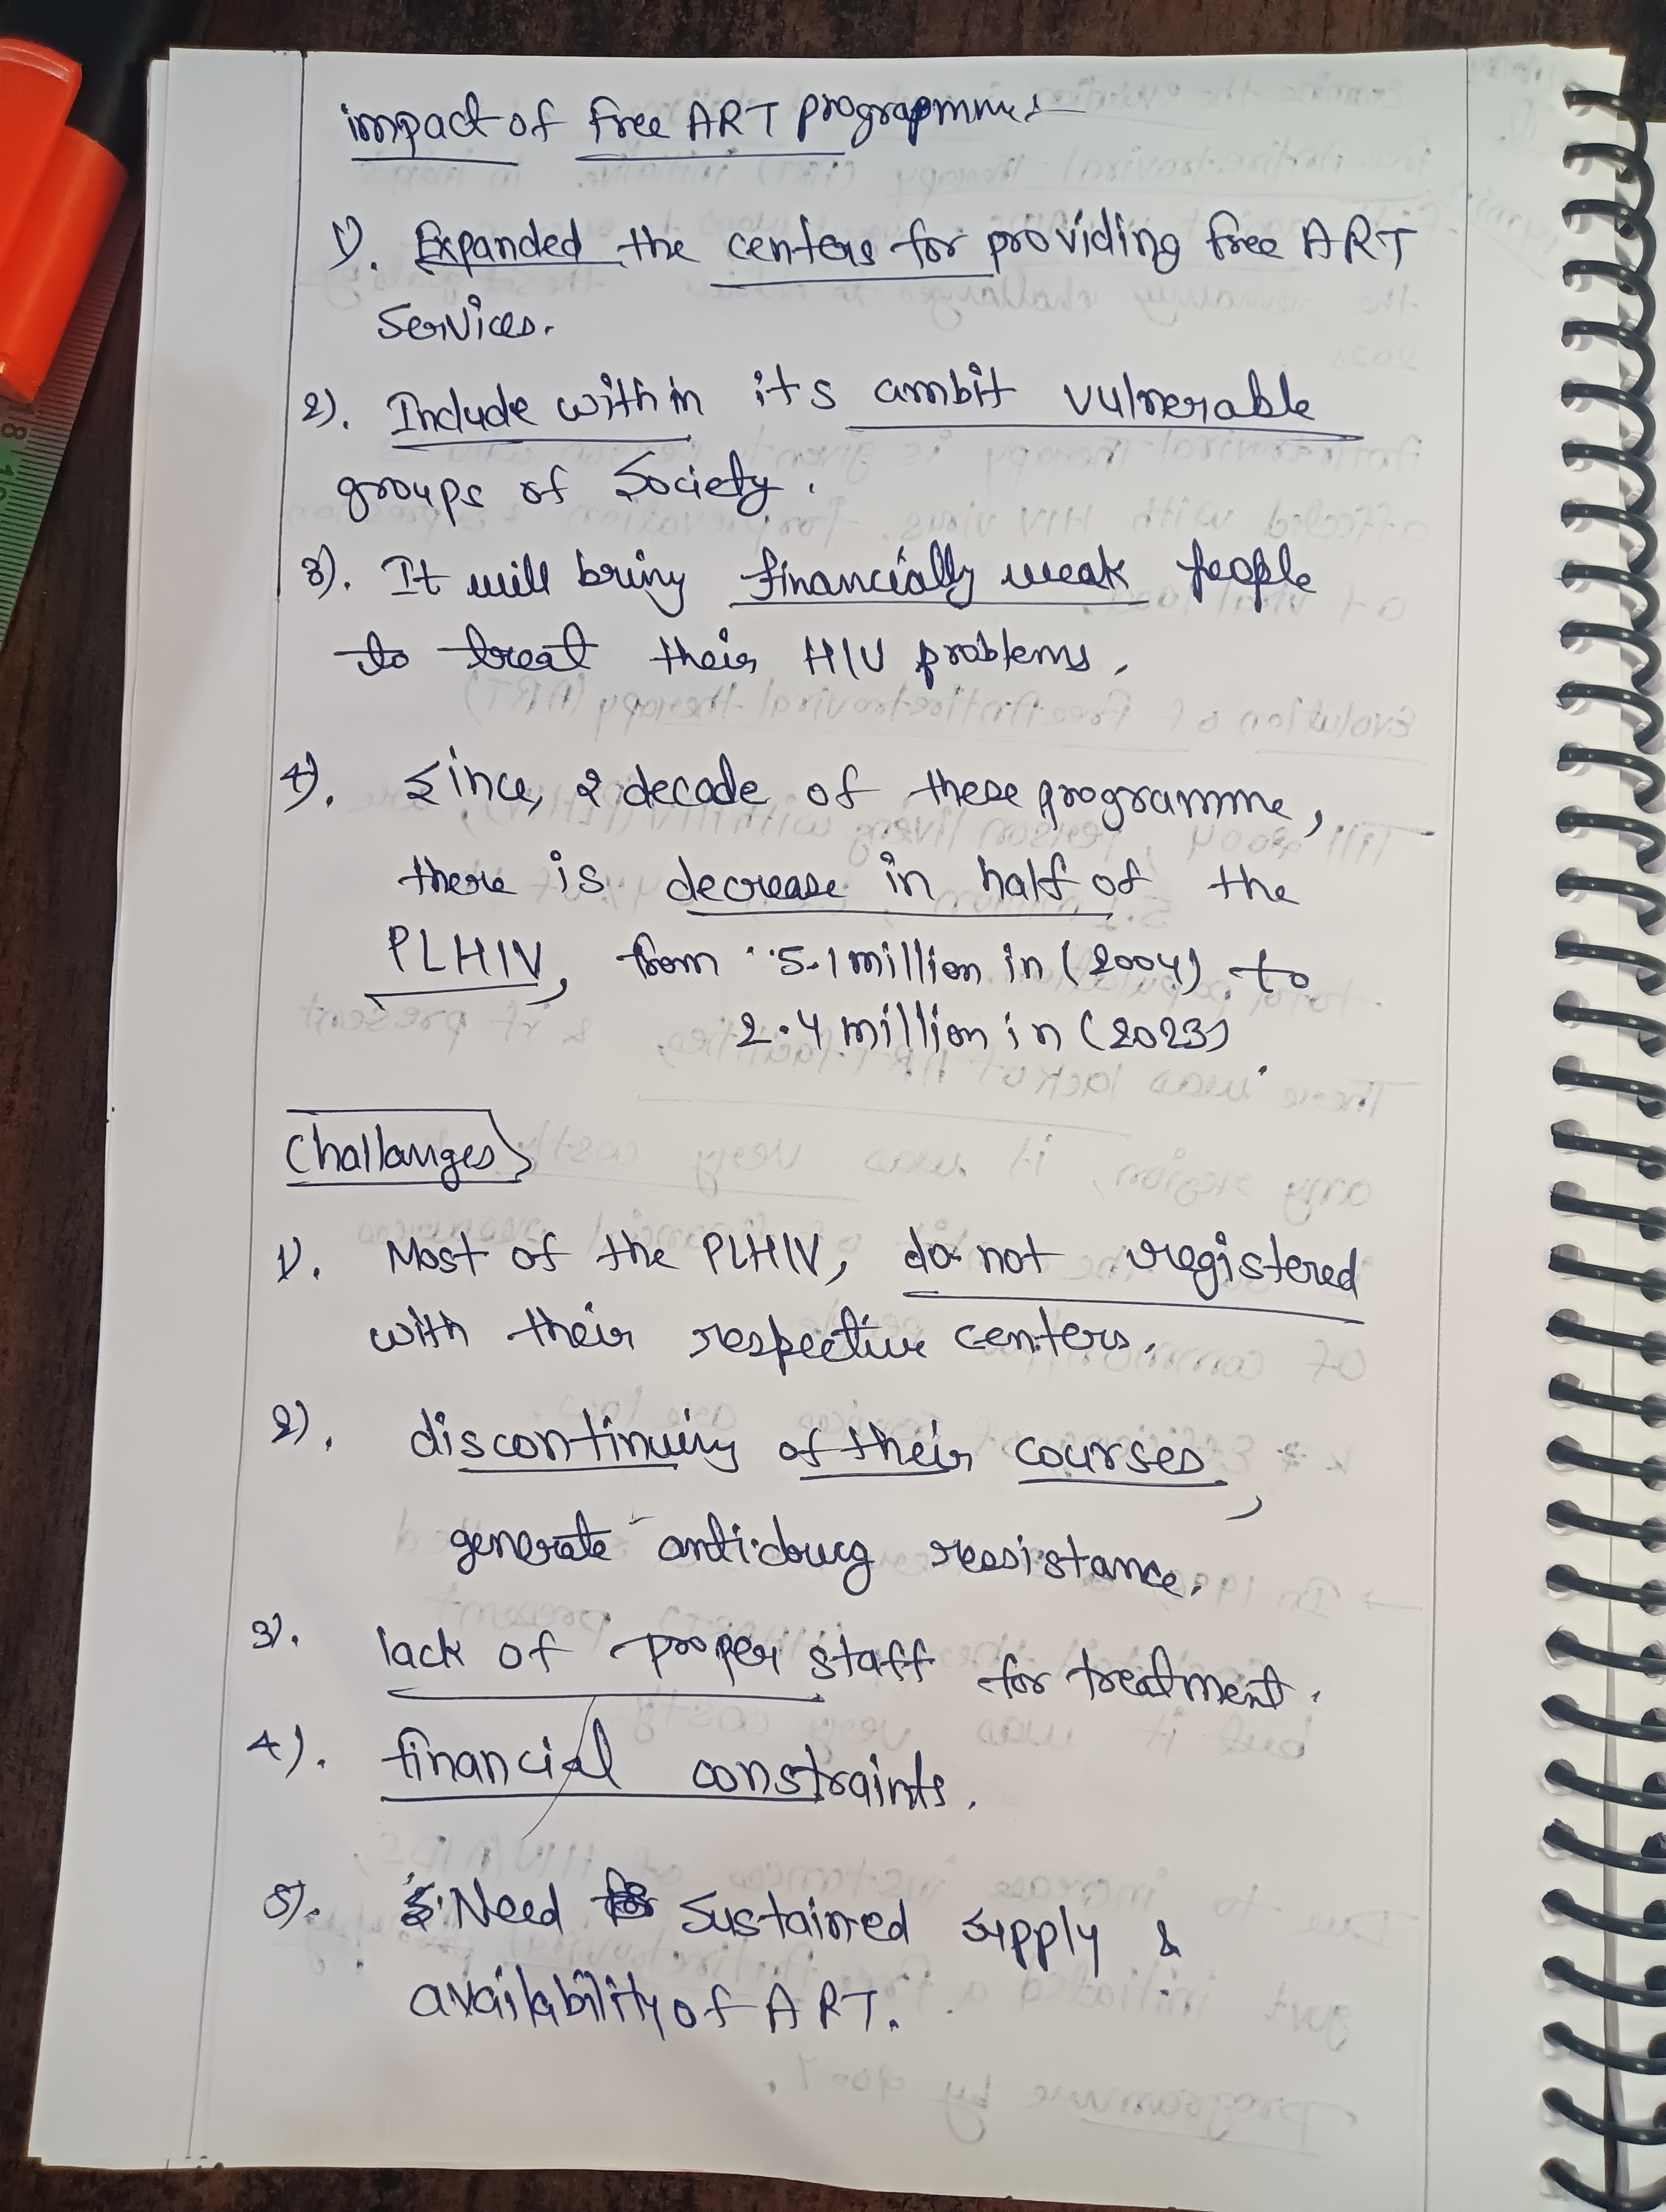 impact of free ART programme:-
1). Expanded the centers for providing free ART
services.
2). Include within its ambit vulnerable
groups of society.
3). It will bring financially weak people
to treat their HIV problems.
4). Since, 2 decade of these programme,
there is decrease in half of the
PLHIV, from 5.1 million in (2004) to
2.4 million in (2023).
Challanges
1). Most of the PLHIV, do not registered
with their respective centers.
2). discontinuiy of their courses,
generate antidrug resistance.
3). lack of proper staff for treatment.
4). financial constraints.
5). Need sustained supply &
availability of ART.